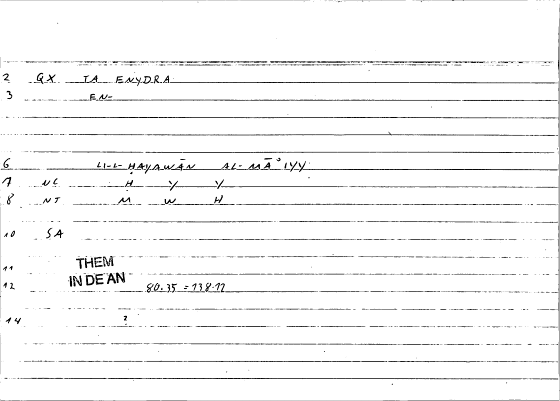 2 QX TA ENYDRA
3 EN-
6 LI-L-ḤAYAWĀN AL-MĀʾIYY
7 NL Ḥ Y Y
8 NT M W H
10 SA
11 THEM
12 IN DE AN 80.35 = 138.11
14 ?